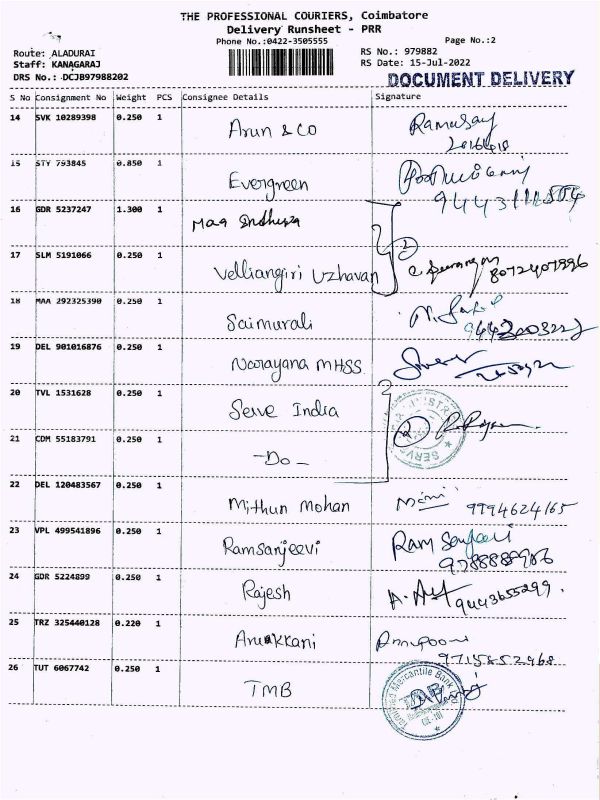 THE PROFESSIONAL COURIERS, Coimbatore
Delivery Runsheet - PRR
Phone No.:0422-3505555
Page No.:2
Route: ALADURAI
RS No.: 979882
Staff: KANAGARAJ
RS Date: 15-Jul-2022
DRS No.: DCJB97988202
DOCUMENT DELIVERY
S No Consignment No Weight PCS Consignee Details Signature
14 SVK 10289398 0.250 1 Arun & Co
15 STY 793845 0.850 1 Evergreen
16 GDR 5237247 1.300 1 Maa
17 SLM 5191066 0.250 1 Velliangiri Uzhavan 2 8072407896
18 MAA 292325390 0.250 1 Saimurali
19 DEL 901016876 0.250 1 Narayana MHSS
20 TVL 1531628 0.250 1 Serve India
21 CDM 55183791 0.250 1 -Do- 2
22 DEL 120483567 0.250 1 Mithun Mohan 9994624165
23 VPL 499541896 0.250 1 Ramsanjeevi Ram
24 GDR 5224899 0.250 1 Rajesh 9443655299.
25 TRZ 325440128 0.220 1 Arukkani 9715852968
26 TUT 6067742 0.250 1 TMB
Tamilnad Mercantile Bank